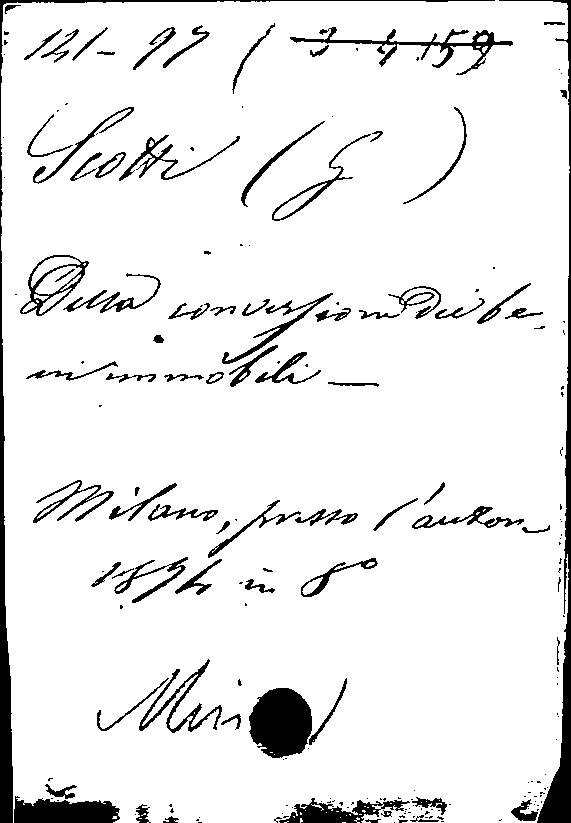 121-97 ( 3 4 159
Scotti (G )
Della conversione dei be-
ni immobili —
Milano, presso l'autore
1874 in 8º